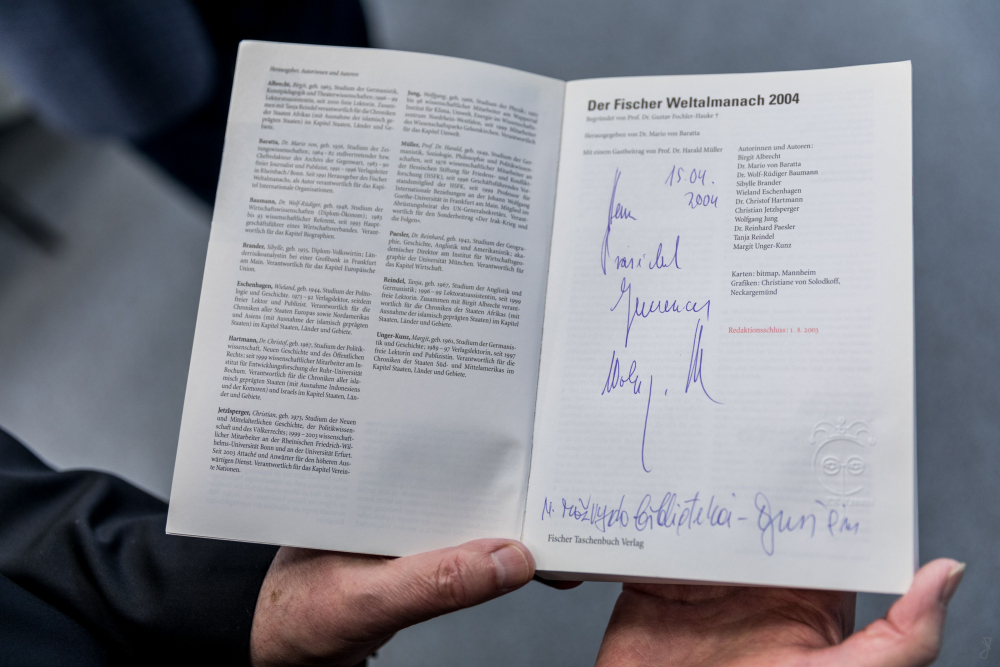 Herausgeber, Autorinnen und Autoren
Albrecht, Birgit, geb. 1965, Studium der Germanistik,
Kunstpädagogik und Theaterwissenschaften; 1996–99
Lektoratsassistentin, seit 2000 freie Lektorin. Zusam-
men mit Tanja Reindel verantwortlich für die Chroniken
der Staaten Afrikas (mit Ausnahme der islamisch ge-
prägten Staaten) im Kapitel Staaten, Länder und Ge-
biete.
Baratta, Dr. Mario von, geb. 1936, Studium der Zei-
tungswissenschaften; 1964–82 stellvertretender bzw.
Chefredakteur des Archivs der Gegenwart, 1983–90
freier Journalist und Publizist, 1991–1996 Verlagsleiter
in Rheinbach / Bonn. Seit 1991 Herausgeber des Fischer
Weltalmanachs, als Autor verantwortlich für das Kapi-
tel Internationale Organisationen.
Baumann, Dr. Wolf-Rüdiger, geb. 1948, Studium der
Wirtschaftswissenschaften (Diplom-Ökonom); 1983
bis 93 wissenschaftlicher Referent, seit 1995 Haupt-
geschäftsführer eines Wirtschaftsverbandes. Verant-
wortlich für das Kapitel Biographien.
Brander, Sibylle, geb. 1955, Diplom-Volkswirtin; Län-
derrisikoanalystin bei einer Großbank in Frankfurt
am Main. Verantwortlich für das Kapitel Europäische
Union.
Eschenhagen, Wieland, geb. 1944, Studium der Polito-
logie und Geschichte. 1973–92 Verlagslektor, seitdem
freier Lektor und Publizist. Verantwortlich für die
Chroniken aller Staaten Europas sowie Nordamerikas
und Asiens (mit Ausnahme der islamisch geprägten
Staaten) im Kapitel Staaten, Länder und Gebiete.
Hartmann, Dr. Christof, geb. 1967, Studium der Politik-
wissenschaft, Neuen Geschichte und des Öffentlichen
Rechts; seit 1999 wissenschaftlicher Mitarbeiter am In-
stitut für Entwicklungsforschung der Ruhr-Universität
Bochum. Verantwortlich für die Chroniken aller isla-
misch geprägten Staaten (mit Ausnahme Indonesiens
und der Komoren) und Israels im Kapitel Staaten, Län-
der und Gebiete.
Jetzlsperger, Christian, geb. 1973, Studium der Neuen
und Mittelalterlichen Geschichte, der Politikwissen-
schaft und des Völkerrechts; 1999–2003 wissenschaft-
licher Mitarbeiter an der Rheinischen Friedrich-Wil-
helms-Universität Bonn und an der Universität Erfurt.
Seit 2003 Attaché und Anwärter für den höheren Aus-
wärtigen Dienst. Verantwortlich für das Kapitel Verein-
te Nationen.
Jung, Wolfgang, geb. 1960, Studium der Physik; 1992
bis 98 wissenschaftlicher Mitarbeiter am Wuppertal
Institut für Klima, Umwelt, Energie im Wissenschafts-
zentrum Nordrhein-Westfalen, seit 1999 Mitarbeiter
des Wissenschaftsparks Gelsenkirchen. Verantwortlich
für das Kapitel Umwelt.
Müller, Prof. Dr. Harald, geb. 1949, Studium der Ger-
manistik, Soziologie, Philosophie und Politikwissen-
schaften, seit 1976 wissenschaftlicher Mitarbeiter an
der Hessischen Stiftung für Friedens- und Konflikt-
forschung (HSFK), seit 1996 Geschäftsführendes Vor-
standsmitglied der HSFK, seit 1999 Professor für
Internationale Beziehungen an der Johann Wolfgang
Goethe-Universität in Frankfurt am Main. Mitglied im
Abrüstungsbeirat des UN-Generalsekretärs. Verant-
wortlich für den Sonderbeitrag »Der Irak-Krieg und
die Folgen«.
Paesler, Dr. Reinhard, geb. 1942, Studium der Geogra-
phie, Geschichte, Anglistik und Amerikanistik; aka-
demischer Direktor am Institut für Wirtschaftsgeo-
graphie der Universität München. Verantwortlich für
das Kapitel Wirtschaft.
Reindel, Tanja, geb. 1967, Studium der Anglistik und
Germanistik; 1996–99 Lektoratsassistentin, seit 1999
freie Lektorin. Zusammen mit Birgit Albrecht verant-
wortlich für die Chroniken der Staaten Afrikas (mit
Ausnahme der islamisch geprägten Staaten) im Kapitel
Staaten, Länder und Gebiete.
Unger-Kunz, Margit, geb. 1961, Studium der Germanis-
tik und Geschichte; 1989–97 Verlagslektorin, seit 1997
freie Lektorin und Publizistin. Verantwortlich für die
Chroniken der Staaten Süd- und Mittelamerikas im
Kapitel Staaten, Länder und Gebiete.
Der Fischer Weltalmanach 2004
Begründet von Prof. Dr. Gustav Fochler-Hauke †
Herausgegeben von Dr. Mario von Baratta
Mit einem Gastbeitrag von Prof. Dr. Harald Müller
Autorinnen und Autoren:
Birgit Albrecht
Dr. Mario von Baratta
Dr. Wolf-Rüdiger Baumann
Sibylle Brander
Wieland Eschenhagen
Dr. Christof Hartmann
Christian Jetzlsperger
Wolfgang Jung
Dr. Reinhard Paesler
Tanja Reindel
Margit Unger-Kunz
Karten: bitmap, Mannheim
Grafiken: Christiane von Solodkoff,
Neckargemünd
Redaktionsschluss: 1. 8. 2003
15.04.
2004
Herrn
Präsident
M. Mažvydo bibliotekai –
Fischer Taschenbuch Verlag